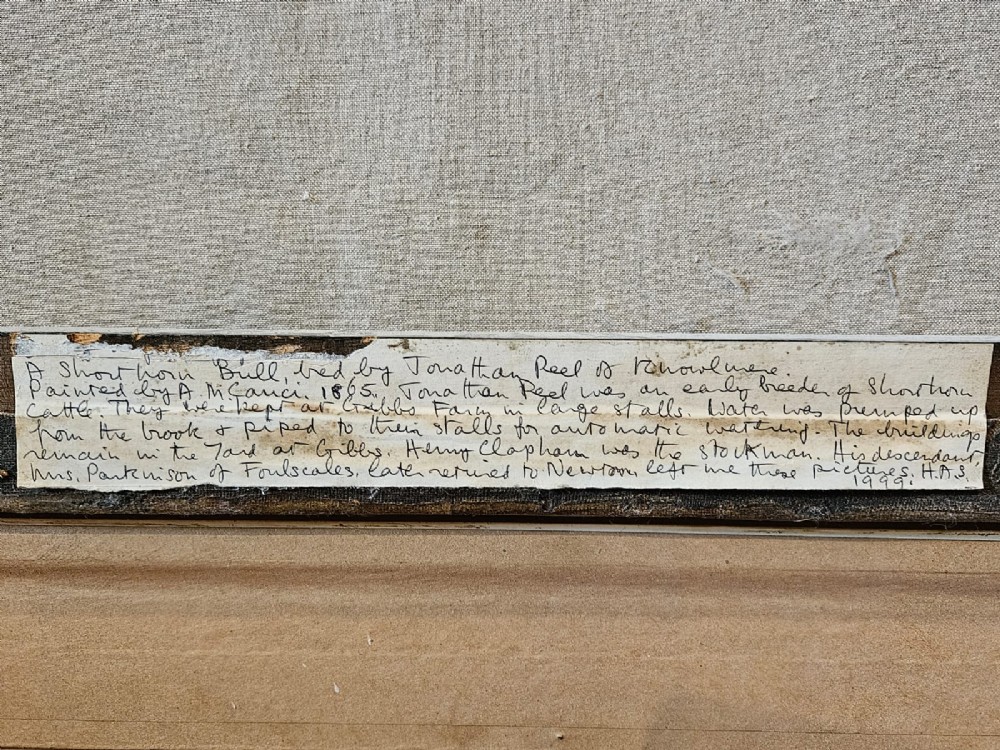 A Shorthorn Bull, bred by Jonathan Peel of Knowlmere.
Painted by A. 1865. Jonathan Peel was an early breeder of Shorthorn
Cattle. They were kept at Gibbs Farm in large stalls. Water was pumped up
from the brook & piped to their stalls for automatic watering. The buildings
remain in the Yard at Gibbs. Henry Clapham was the stockman. His descendant,
Mrs. Parkinson of Foulscales, later retired to Newton left me these pictures. H.A.S.
1999.